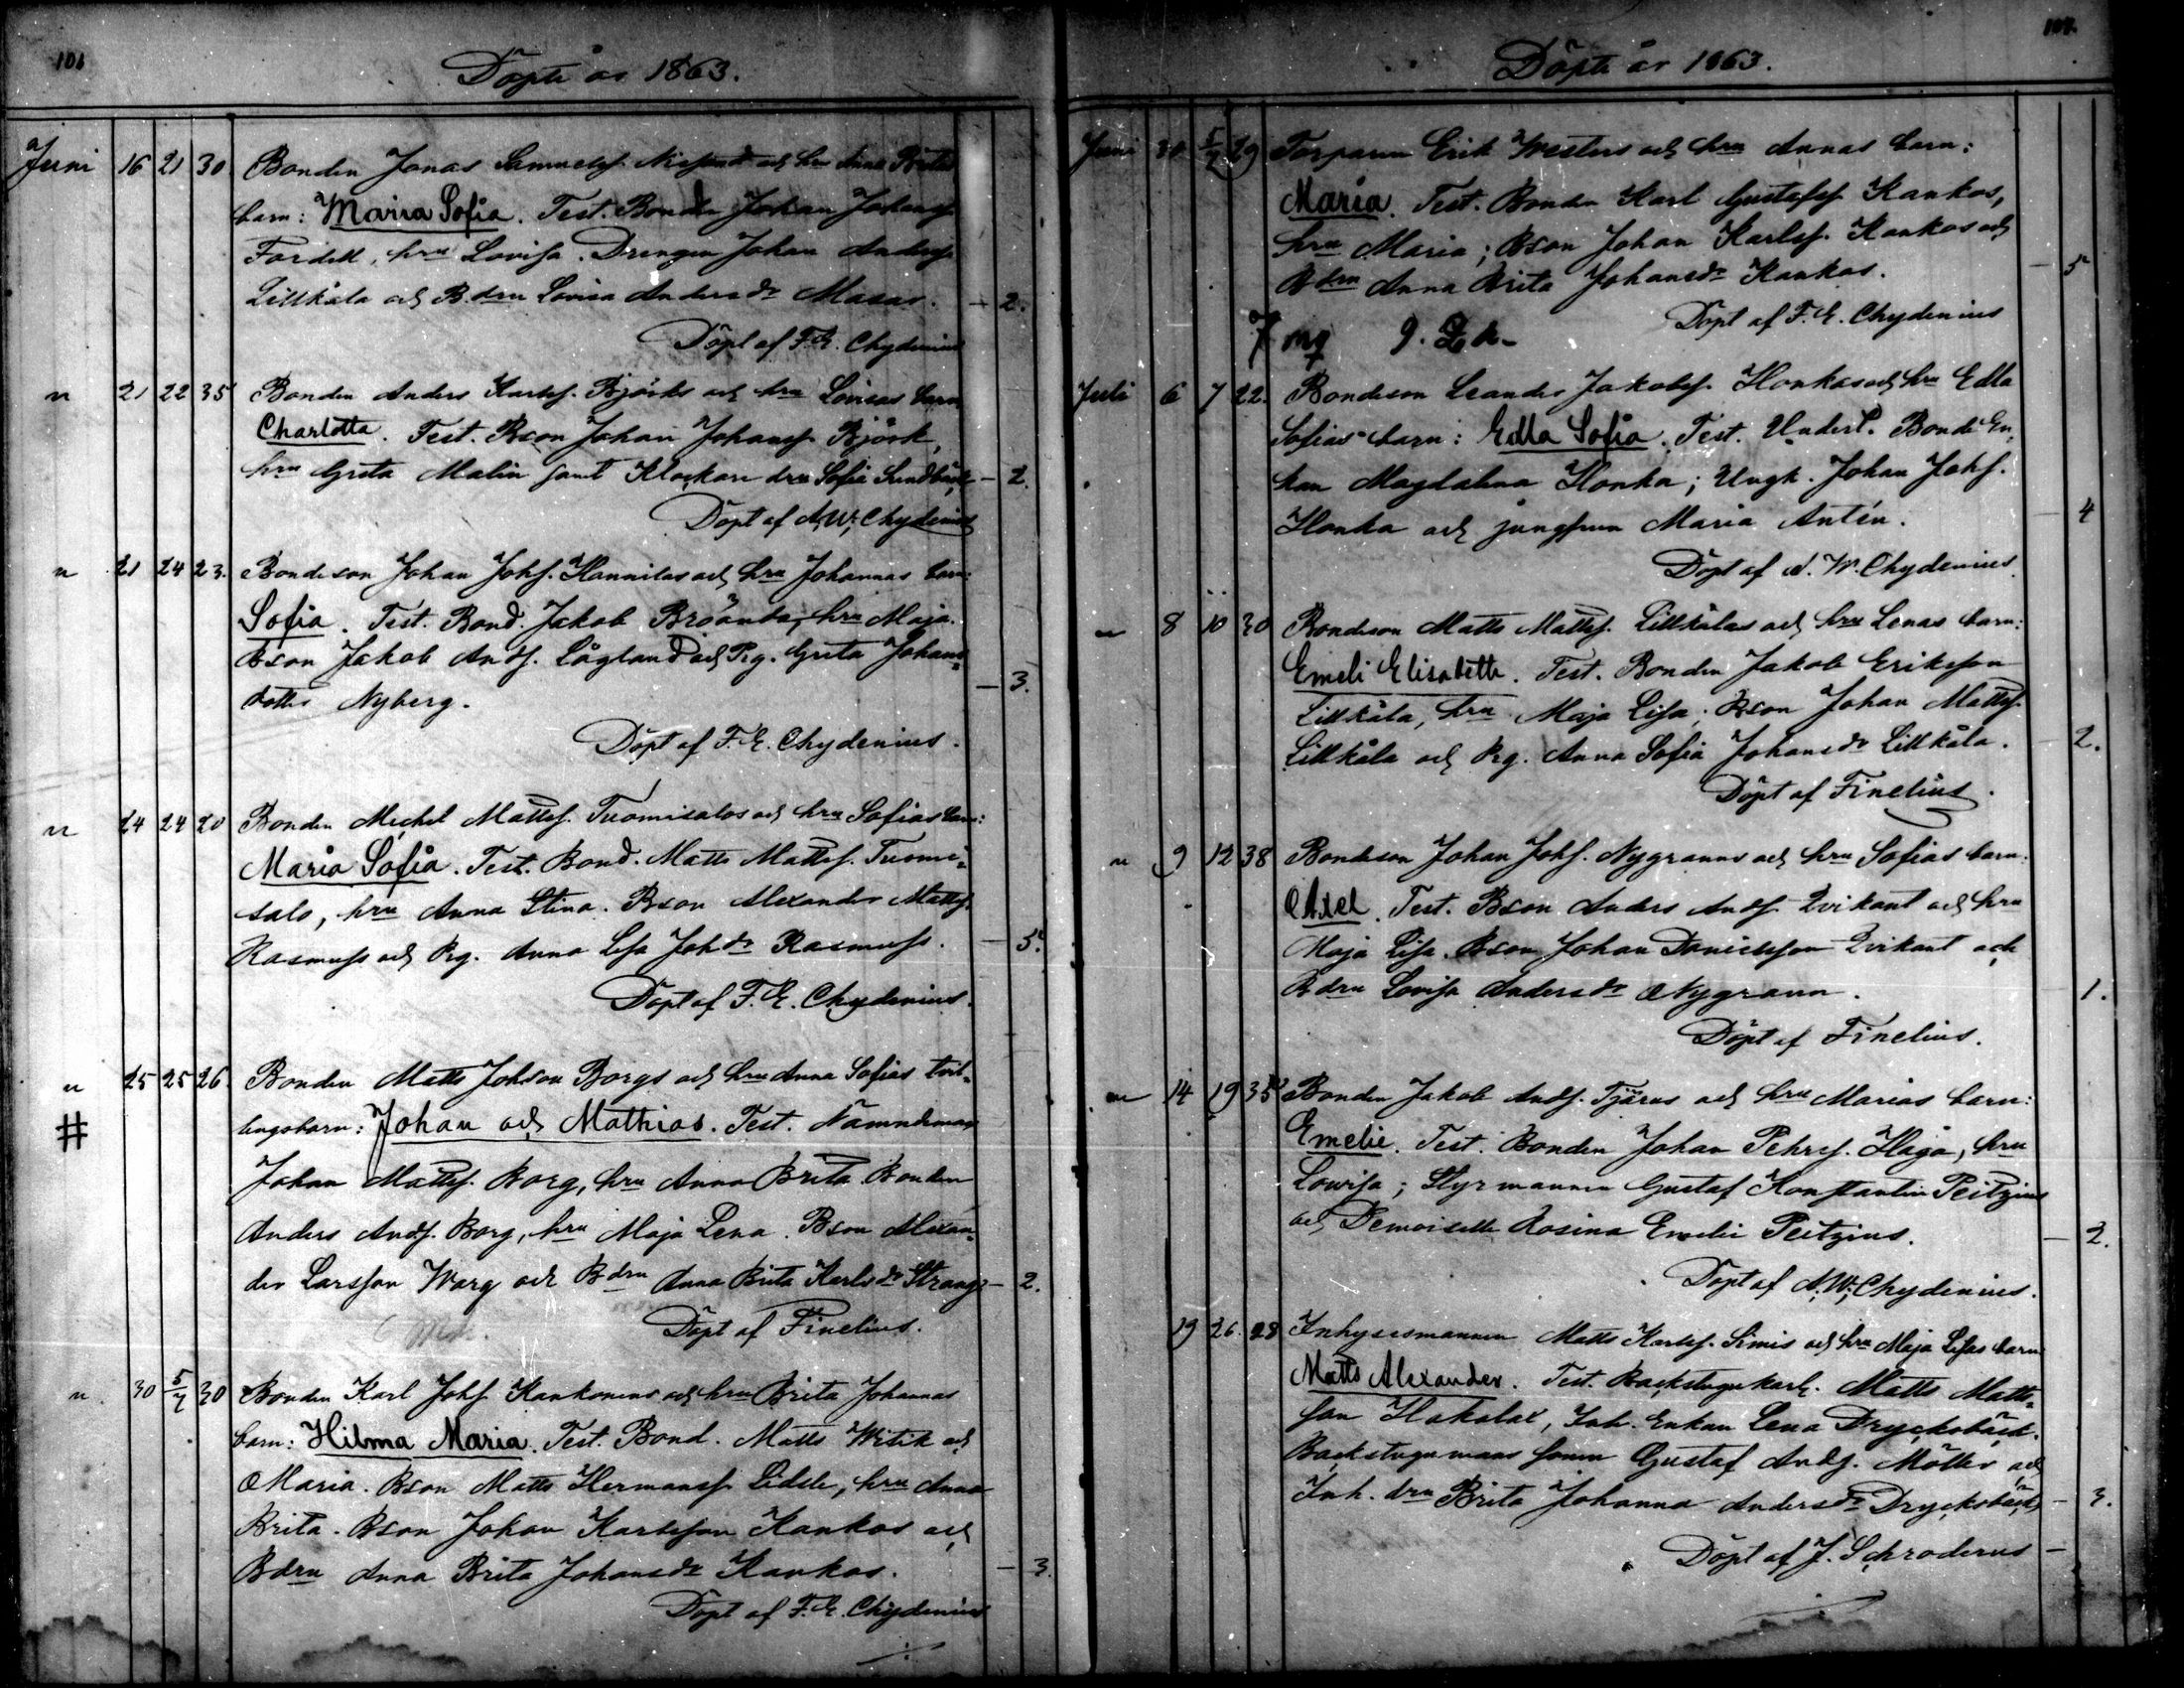 101
Döpte år 1863.
Juni 16 21 30 Bonden Jonas Samuelss. och hru Anna Britas
barn: Maria Sofia. Test. Bonden Johan Johanss.
Fordell, hru Lovisa. Drengen Johan Anderss.
Lillkåla och B.drn Lovisa Andersdr Masar. — 2.
Döpt af F. E. Chydenius
" 21 22 35 Bonden Anders Karlss. Björks och hru Lovisas barn
Charlotta. Test. Bson Johan Johanss. Björk,
hru Greta Malin samt Klockare drn Sofia Sundbäck — 2.
Döpt af A. W. Chydenius
" 21 24 23. Bondeson Johan Johs. Hannilas och hru Johannas barn:
Sofia. Test. Bond. Jakob Bröända, hru Maja.
Bson Jakob Ands. Lågland och Pig. Greta Johans-
dotter Nyberg. — 3.
Döpt af F. E. Chydenius.
" 24 24 20 Bonden Michel Mattss. Tuomisalos och hru Sofias barn:
Maria Sofia. Test. Bond. Matts Mattss. Tuomi-
salo, hru Anna Stina. Bson Alexander Mattss.
Rasmuss och Pig. Anna Lisa Johdr Rasmuss. — 5.
Döpt af F. E. Chydenius.
" 25 25 26. Bonden Matts Johson Borgs och hru Anna Sofias tvil-
# lingsbarn: Johan och Mathias. Test. Nämndeman
Johan Mattss. Borg, hru Anna Brita. Bonden
Anders Ands. Borg, hru Maja Lena. Bson Alexan-
der Larsson Warg och Bdrn Anna Brita Karlsdr Strang — 2.
Döpt af Finelius.
" 30 5/7 30 Bonden Karl Johs. Kankonens och hru Brita Johannas
barn: Hilma Maria. Test. Bond. Matts Witik och
Maria. Bson Matts Hermanss. Lidele, hru Anna
Brita. Bson Johan Karlsson Kankos och
Bdrn Anna Brita Johansdr Kankos. — 3.
Döpt af F. E. Chydenius
Döpte år 1863.
Juni 30 5/7 29 Torparen Erik Westers och hru Annas barn:
Maria. Test. Bonden Karl Gustafss. Kankos,
hru Maria; Bson Johan Karlss. Kankos och
Bdrn Anna Brita Johansdr Kankos. — 5
Döpt af F. E. Chydenius
Juli 6 7 22. Bondeson Leander Jakobss. Honkas och hru Edla
Sofias barn: Edla Sofia. Test. Bonde En-
kan Magdalena Honka; Ungk. Johan Johs.
Honka och jungfrun Maria Antén. — 4
Döpt af A. W. Chydenius.
" 8 10 30 Bondeson Matts Mattss. Lillkålas och hru Lenas barn:
Emeli Elisabeth. Test. Bonden Jakob Eriksson
Lillkåla, hru Maja Lisa; Bson Johan Mattss.
Lillkåla och Pig. Anna Sofia Johansdr Lillkåla. — 2.
Döpt af Finelius.
" 9 12 38 Bondeson Johan Johs. Nygranns och hru Sofias barn.
Axel. Test. Bson Anders Ands. Qvikant och hru
Maja Lisa. Bson Johan Danielsson Qvikant och
Bdrn Lovisa Andersdr Nygrann. 1.
Döpt af Finelius.
" 14 19 35 Bonden Jakob Ands. Tjärus och hru Marias barn:
Emelie. Test. Bonden Johan Pehrss. Haga, hru
Lowisa; Styrmannen Gustaf Konstantin Peitzius
och Demoiselle Rosina Emelie Peitzius. — 2.
Döpt af A. W. Chydenius.
19 26. 28 Inhysesmannen Matts Karlss. Simis och hru Maja Lisas barn
Matts Alexander. Test. Backstugukarl. Matts Matts-
son Hokalax, Inh. Enkan Lena Drycksbäck.
Backstugumans sonen Gustaf Ands. Möller och
Inh. drn Brita Johanna Andersdr Drycksbäck — 3.
Döpt af J. Schroderus —